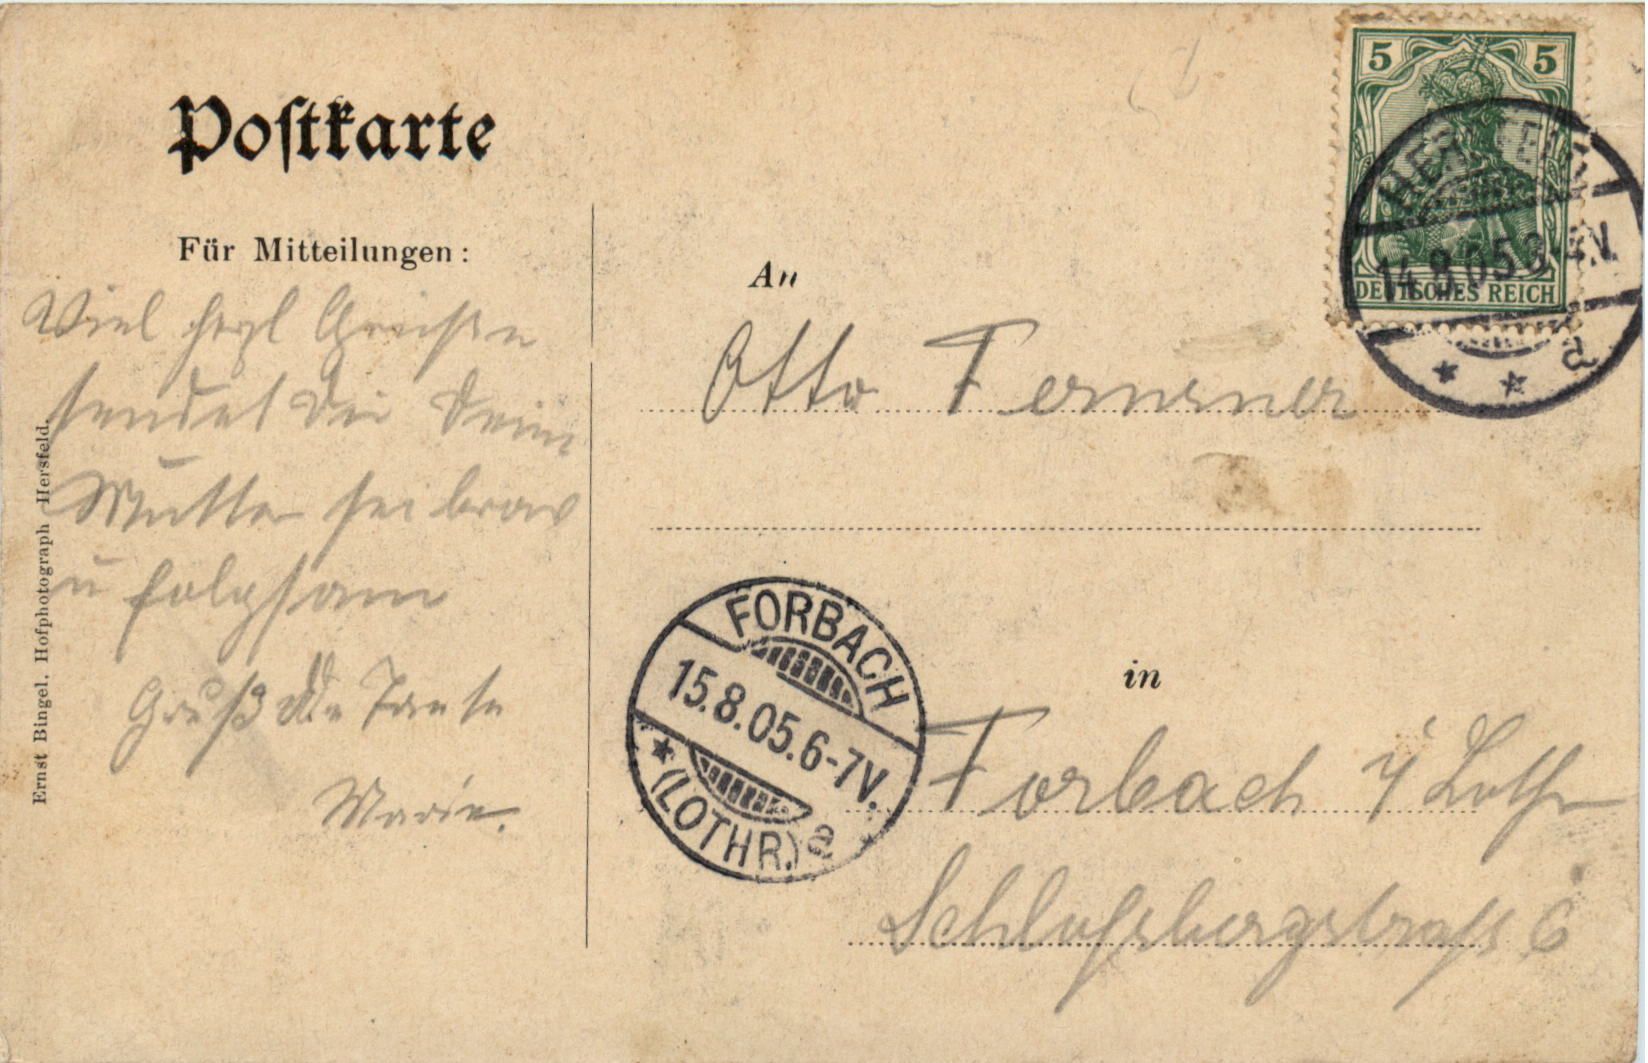 Postkarte
Für Mitteilungen:
Viel herzl Grüße
sendet Dir Deine
Mutter sei brav
u folgsam
Gruß Tante
Marie.
Ernst Bingel, Hofphotograph Hersfeld.
5 5
DEUTSCHES REICH
HERSFELD
14.8.05.8-9V.
a
An
Otto
in
Forbach i/ Lothr
Schloßbergstraße 6
FORBACH
15.8.05.6-7V.
(LOTHR.) a